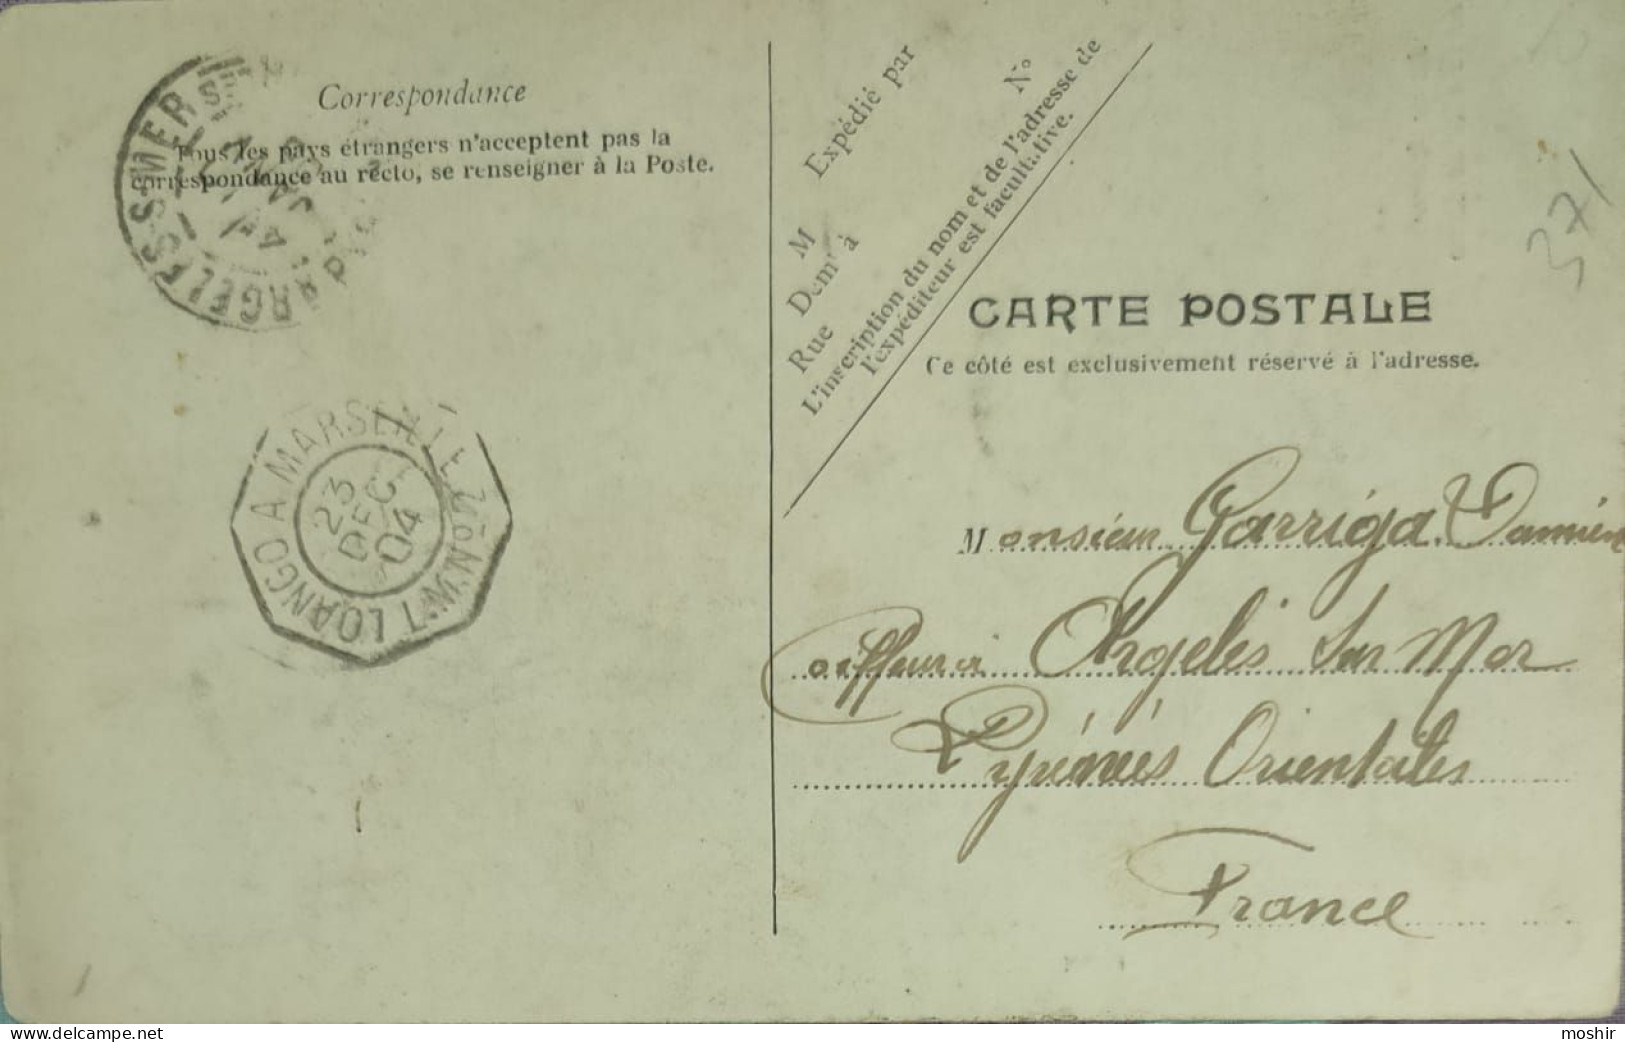 Correspondance
Tous les pays étrangers n'acceptent pas la
correspondance au recto, se renseigner à la Poste.
ARGELÈS-S-MER
JANV
PYR
LOANGO A MARSEILLE
L.M. Nº2
23
DEC
04
Expédié par
M
Demt à
Rue
Nº
L'inscription du nom et de l'adresse de
l'expéditeur est facultative.
371
CARTE POSTALE
Ce côté est exclusivement réservé à l'adresse.
Monsieur Garriga Damien
Coiffeur à Argelès Sur Mer
Pyrénées Orientales
France
delcampe.net
moshir